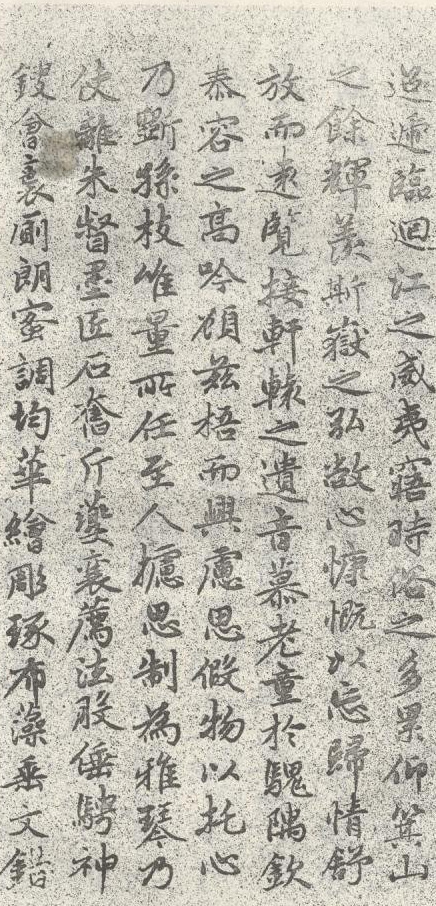 迢遞臨迴江之威夷寤時俗之多累仰箕山
之餘輝羨斯嶽之弘敞心慷慨以忘歸情舒
放而遠覽接軒轅之遺音慕老童於騩隅欽
泰容之高吟顧茲梧而興慮思假物以托心
乃斲孫枝唯量所任至人攄思制為雅琴乃
使離朱督墨匠石奮斤夔襄薦法般倕騁神
鎪會裛廁朗密調均華繪彫琢布藻垂文錯